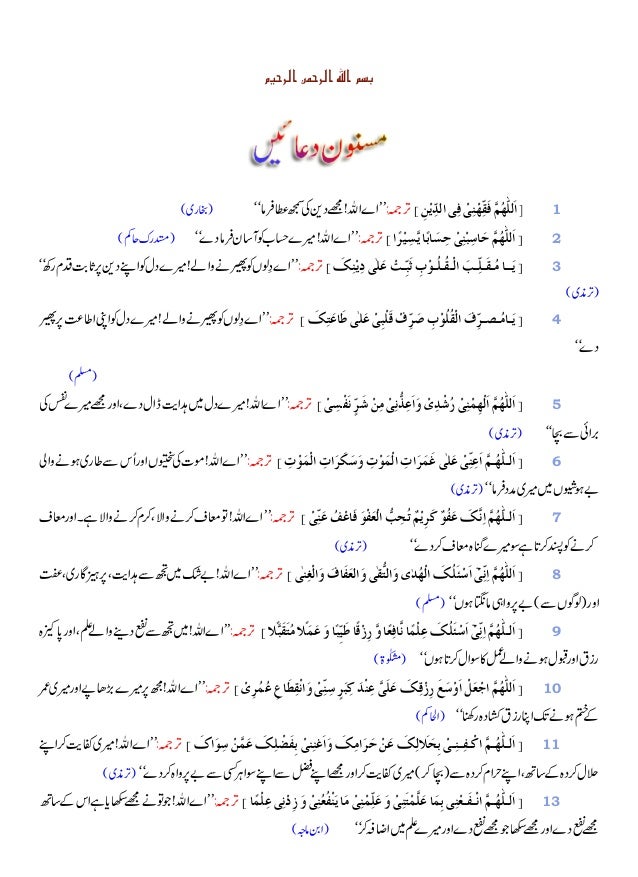 بسم الله الرحمن الرحيم
مسنون دعائیں
1 [ اَللّٰهُمَّ فَقِّهْنِیْ فِی الدِّیْنِ ] ترجمہ: ’’اے اللہ! مجھے دین کی سمجھ عطا فرما‘‘ (بخاری)
2 [ اَللّٰهُمَّ حَاسِبْنِیْ حِسَابًا یَّسِیْرًا ] ترجمہ: ’’اے اللہ! میرے حساب کو آسان فرما دے‘‘ (مستدرک حاکم)
3 [ یَا مُقَلِّبَ الْقُلُوْبِ ثَبِّتْ عَلٰی دِیْنِکَ ] ترجمہ: ’’اے دلوں کو پھیرنے والے! میرے دل کو اپنے دین پر ثابت قدم رکھ‘‘
(ترمذی)
4 [ یَامُصَرِّفَ الْقُلُوْبِ صَرِّفْ قَلْبِیْ عَلٰی طَاعَتِکَ ] ترجمہ: ’’اے دلوں کو پھیرنے والے! میرے دل کو اپنی اطاعت پر پھیر
دے‘‘
(مسلم)
5 [ اَللّٰهُمَّ اَلْهِمْنِیْ رُشْدِیْ وَاَعِذْنِیْ مِنْ شَرِّ نَفْسِیْ ] ترجمہ: ’’اے اللہ! میرے دل میں ہدایت ڈال دے، اور مجھے میرے نفس کی
برائی سے بچا‘‘ (ترمذی)
6 [ اَللّٰهُمَّ اَعِنِّیْ عَلٰی غَمَرَاتِ الْمَوْتِ وَسَکَرَاتِ الْمَوْتِ ] ترجمہ: ’’اے اللہ! موت کی سختیوں اور اُس سے طاری ہونے والی
بے ہوشیوں میں میری مدد فرما‘‘ (ترمذی)
7 [ اَللّٰهُمَّ اِنَّکَ عَفُوٌّ کَرِیْمٌ تُحِبُّ الْعَفْوَ فَاعْفُ عَنِّیْ ] ترجمہ: ’’اے اللہ! تو معاف کرنے والا، کرم کرنے والا ہے۔ اور معاف
کرنے کو پسند کرتا ہے سو میرے گناہ معاف کر دے‘‘ (ترمذی)
8 [ اَللّٰهُمَّ اِنِّیْ اَسْئَلُکَ الْهُدٰی وَالتُّقٰی وَالْعَفَافَ وَالْغِنٰی ] ترجمہ: ’’اے اللہ! بے شک میں تجھ سے ہدایت، پرہیز گاری، عفت
اور (لوگوں سے) بے پرواہی مانگتا ہوں‘‘ (مسلم)
9 [ اَللّٰهُمَّ اِنِّیْ اَسْئَلُکَ عِلْمًا نَّافِعًا وَّ رِزْقًا طَیِّبًا وَ عَمَلًا مُتَقَبَّلًا ] ترجمہ: ’’اے اللہ! میں تجھ سے نفع دینے والے علم، اور پاکیزہ
رزق اور قبول ہونے والے عمل کا سوال کرتا ہوں‘‘ (مشکوٰۃ)
10 [ اَللّٰهُمَّ اجْعَلْ اَوْسَعَ رِزْقِکَ عَلَیَّ عِنْدَ کِبَرِ سِنِّیْ وَ انْقِطَاعِ عُمُرِیْ ] ترجمہ: ’’اے اللہ! مجھ پر میرے بڑھاپے اور میری عمر
کے ختم ہونے تک اپنا رزق کشادہ رکھنا‘‘ (الحاکم)
11 [ اَللّٰهُمَّ اکْفِنِیْ بِحَلَالِکَ عَنْ حَرَامِکَ وَاَغْنِنِیْ بِفَضْلِکَ عَمَّنْ سِوَاکَ ] ترجمہ: ’’اے اللہ! میری کفایت کر اپنے
حلال کردہ کے ساتھ، اپنے حرام کردہ سے (بچا کر) میری کفایت کر اور مجھے اپنے فضل سے اپنے سوا ہر کسی سے بے پرواہ کر دے‘‘ (ترمذی)
13 [ اَللّٰهُمَّ انْفَعْنِی بِمَا عَلَّمْتَنِیْ وَ عَلِّمْنِیْ مَا یَنْفَعُنِیْ وَ زِدْنِی عِلْمًا ] ترجمہ: ’’اے اللہ! جو تو نے مجھے سکھایا ہے اس کے ساتھ
مجھے نفع دے اور مجھے سکھا جو مجھے نفع دے اور میرے علم میں اضافہ کر‘‘ (ابن ماجہ)